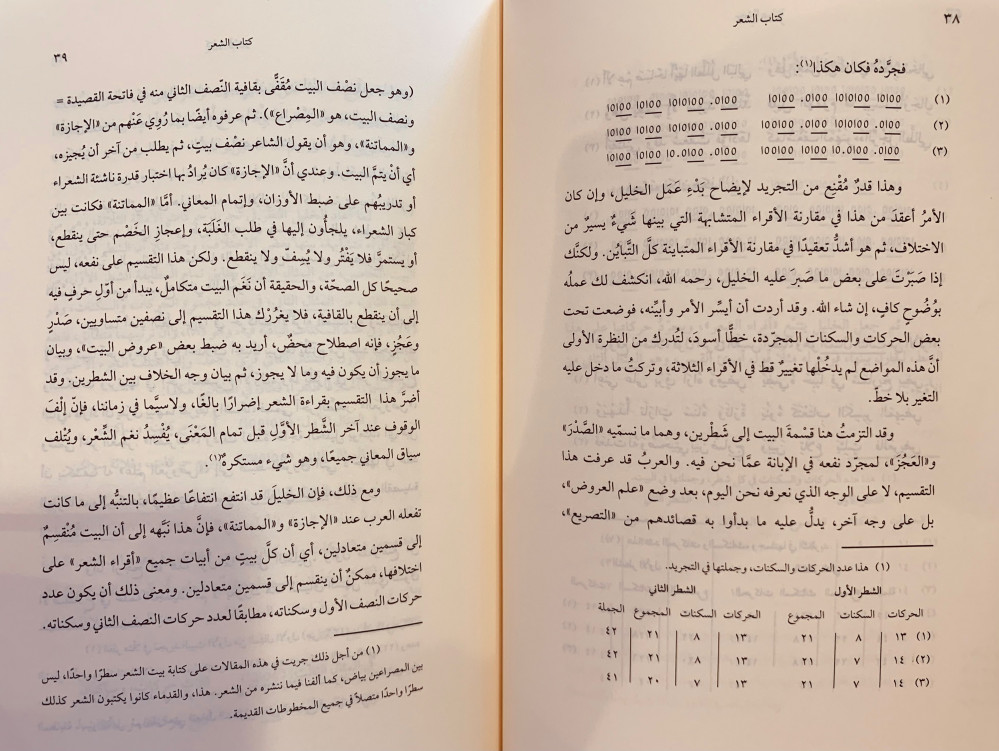 ٣٨
كتاب الشعر
فجرَّدهُ فكان هكذا(١):
(١) 10100 10100 1010100 .0100 10100 .0100 1010100 10100
(٢) 10100 10100 1010100 .0100 100100 .0100 1010100 .0100
(٣) 10100 10100 10.0100 .0100 100100 10100 10.0100 .0100
وهذا قدرٌ مُقْنِع من التجريد لإيضاح بَدْءِ عَمَل الخليل، وإن كان
الأمرُ أعقدَ من هذا في مقارنة الأقراء المتشابهة التي بينها شَيءٌ يسيرٌ من
الاختلاف، ثم هو أشدُّ تعقيدًا في مقارنة الأقراء المتباينة كلَّ التَّبايُن. ولكنَّك
إذا صَبَرْتَ على بعض ما صَبرَ عليه الخليل، رحمه الله، انكشف لك عملُه
بوُضُوحٍ كافٍ، إن شاء الله. وقد أردت أن أيسِّر الأمر وأبيِّنه، فوضعت تحت
بعض الحركات والسكنات المجرّدة، خطًّا أسودَ، لتُدرك من النظرة الأولى
أنَّ هذه المواضع لم يدخُلْها تغييرٌ قط في الأقراء الثلاثة، وتركتُ ما دخل عليه
التغير بلا خطّ.
وقد التزمتُ هنا قسْمةَ البيت إلى شَطْرين، وهما ما نسمّيه «الصَّدْرَ»
و«العَجُزَ»، لمجرّد نفعه في الإبانة عمَّا نحن فيه. والعربُ قد عرفت هذا
التقسيم، لا على الوجه الذي نعرفه نحن اليوم، بعد وضع «علم العروض»،
بل على وجه آخر، يدلُّ عليه ما بدأوا به قصائدهم من «التصريع»،
(١) هذا عدد الحركات والسكنات، وجملتها في التجريد.
الشطر الأول الشطر الثاني
الحركات السكنات المجموع الحركات السكنات المجموع الجملة
(١) ١٣ ٨ ٢١ ١٣ ٨ ٢١ ٤٢
(٢) ١٤ ٧ ٢١ ١٣ ٨ ٢١ ٤٢
(٣) ١٤ ٧ ٢١ ١٣ ٧ ٢٠ ٤١
كتاب الشعر
٣٩
(وهو جعل نصْف البيت مُقَفًّى بقافية النّصف الثاني منه في فاتحة القصيدة =
ونصف البيت، هو «المِصْراع»). ثم عرفوه أيضًا بما رُوِي عَنْهم من «الإجازة»
و«المماتنة»، وهو أن يقول الشاعر نصْف بيتٍ، ثم يطلب من آخر أن يُجيزَه،
أي أنْ يتمَّ البيت. وعندي أنَّ «الإجازة» كان يُرادُ بها اختبار قدرة ناشئة الشعراء
أو تدريبُهم على ضبط الأوزان، وإتمام المعاني. أمَّا «المماتنة» فكانت بين
كبار الشعراء، يلجأُون إليها في طلب الغَلَبَة، وإعجازِ الخَصْم حتى ينقطع،
أو يستمرَّ فلا يَفْتُر ولا يُسِفّ ولا ينقطع. ولكن هذا التقسيم على نفعه، ليس
صحيحًا كل الصحّة، والحقيقة أن نَغَم البيت متكاملٌ، يبدأ من أوّلِ حرفٍ فيه
إلى أن ينقطع بالقافية، فلا يغرُرْك هذا التقسيم إلى نصفين متساويين، صَدْرٍ
وعَجُزٍ، فإنه اصطلاح محضٌ، أريد به ضبط بعض «عروض البيت»، وبيان
ما يجوز أن يكون فيه وما لا يجوز، ثم بيان وجه الخلاف بين الشطرين. وقد
أضرَّ هذا التقسيم بقراءة الشعر إضرارًا بالغًا، ولاسيَّما في زماننا، فإنّ إلْفَ
الوقوف عند آخر الشَّطر الأوَّلِ قبل تمام المَعْنَى، يُفْسِدُ نغم الشِّعْر، ويُتْلف
سياق المعاني جميعًا، وهو شيء مستكرهٌ(١).
ومع ذلك، فإن الخليلَ قد انتفع انتفاعًا عظيمًا، بالتنبُّه إلى ما كانت
تفعله العرب عند «الإجازة» و«المماتنة»، فإنَّ هذا نَبَّهه إلى أن البيت مُنْقسِمٌ
إلى قسمين متعادلين، أي أن كلَّ بيتٍ من أبيات جميع «أقراء الشعر» على
اختلافها، ممكنٌ أن ينقسم إلى قسمين متعادلين. ومعنى ذلك أن يكون عدد
حركات النصف الأول وسكناته، مطابقًا لعدد حركات النصف الثاني وسكناته.
(١) من أجل ذلك جريت في هذه المقالات على كتابة بيت الشعر سطرًا واحدًا، ليس
بين المصراعين بياض، كما ألفنا فيما ننشره من الشعر. هذا، والقدماء كانوا يكتبون الشعر كذلك
سطرًا واحدًا متصلاً في جميع المخطوطات القديمة.